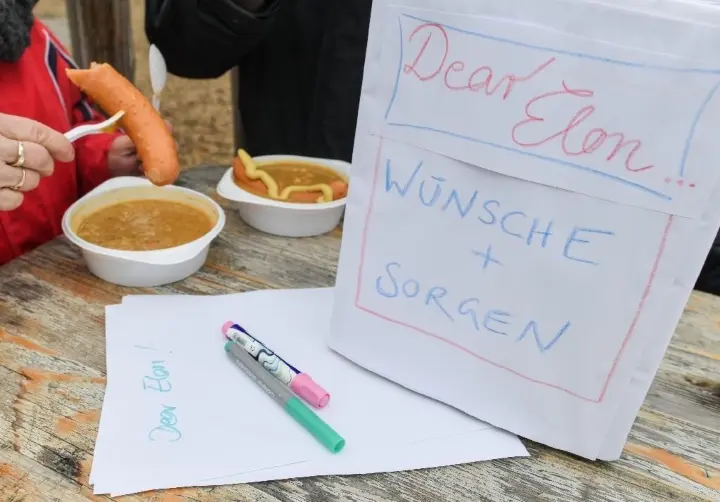 Dear
Elon...
WÜNSCHE
+
SORGEN
Dear Elon!